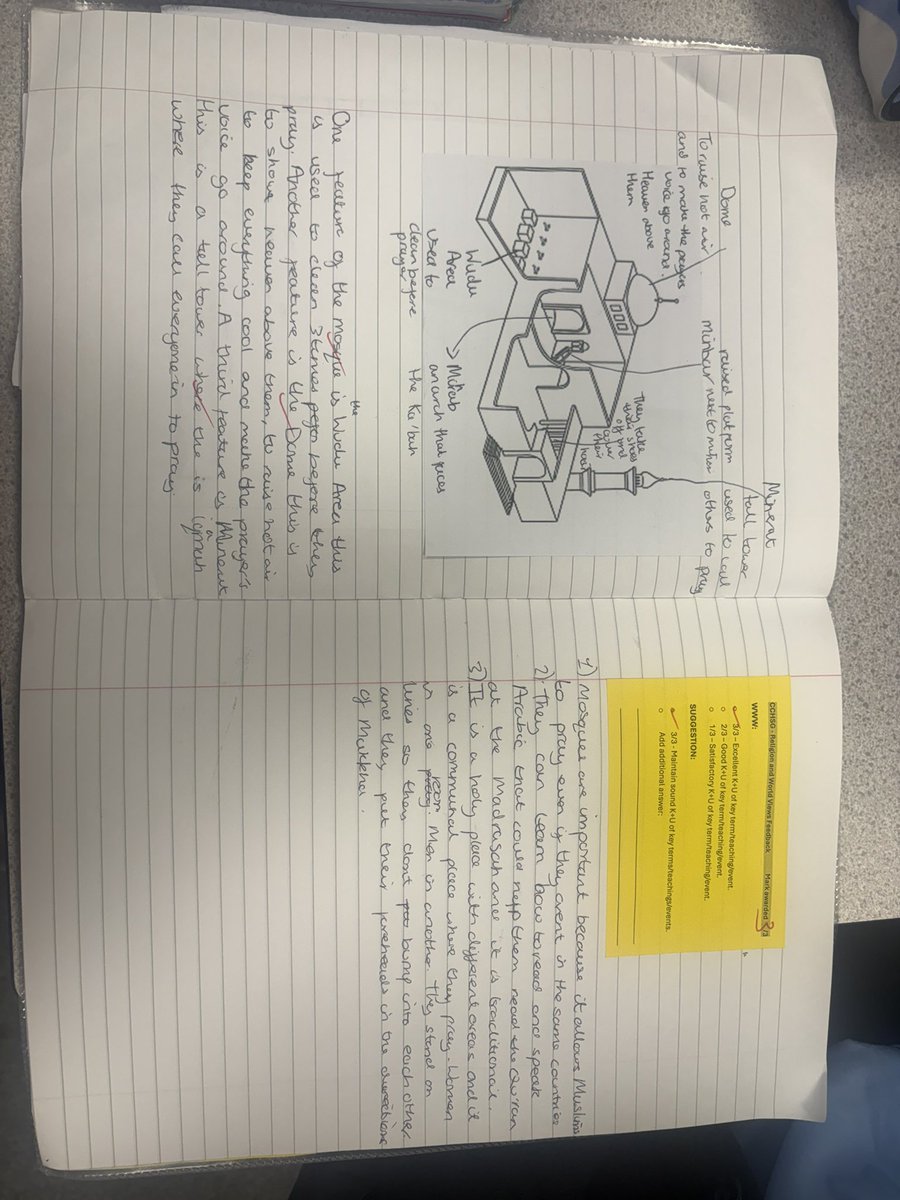 Dome
To raise hot air
and to make the prayers
voice go around.
Heaven above
them
raised platform
minbar next to mihr
Minerat
tall tower
used to call
others to pray
They take
their shoes
off and
cover
their
hair
Wudu
Area
used to
clean before
prayer
→ Mihrab
an arch that faces
the Ka'bah
One feature of the mosque is the Wudu Area this
is used to clean 3 times before they
pray. Another feature is the Dome this is
to show heaven above them, to raise hot air
to keep everything cool and make the prayer's
voice go around. A third feature is a Minerat
this is a tall tower where the is
where they call everyone in to pray
CCHSG - Religion and World Views Feedback Mark awarded 3/3
WWW:
✓ 3/3 – Excellent K+U of key term/teaching/event.
○ 2/3 – Good K+U of key term/teaching/event.
○ 1/3 – Satisfactory K+U of key term/teaching/event.
SUGGESTION:
✓ 3/3 - Maintain sound K+U of key terms/teachings/events.
○ Add additional answer:
1) Mosques are important because it allows Muslims
to pray even if they arent in the same countries
2) They can learn how to read and speak
Arabic that could help them read the Qur'an
at the Madrasah and it is traditional.
3) It is a holy place with different areas and it
is a communal place where they pray. Women
in one room. Men in another. They stand on
lines so they dont bump into each other
and they put their foreheads in the direction
of Makkha.